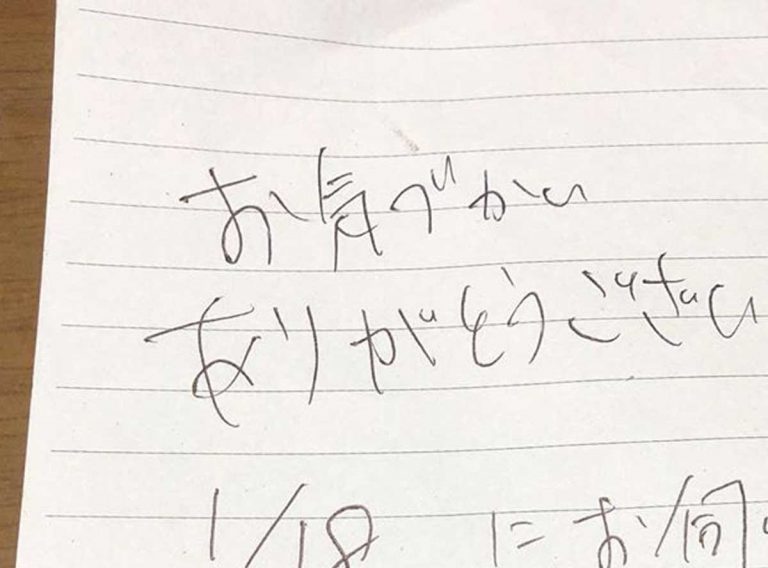 お気づかい
ありがとうござい
1/18 にお伺い